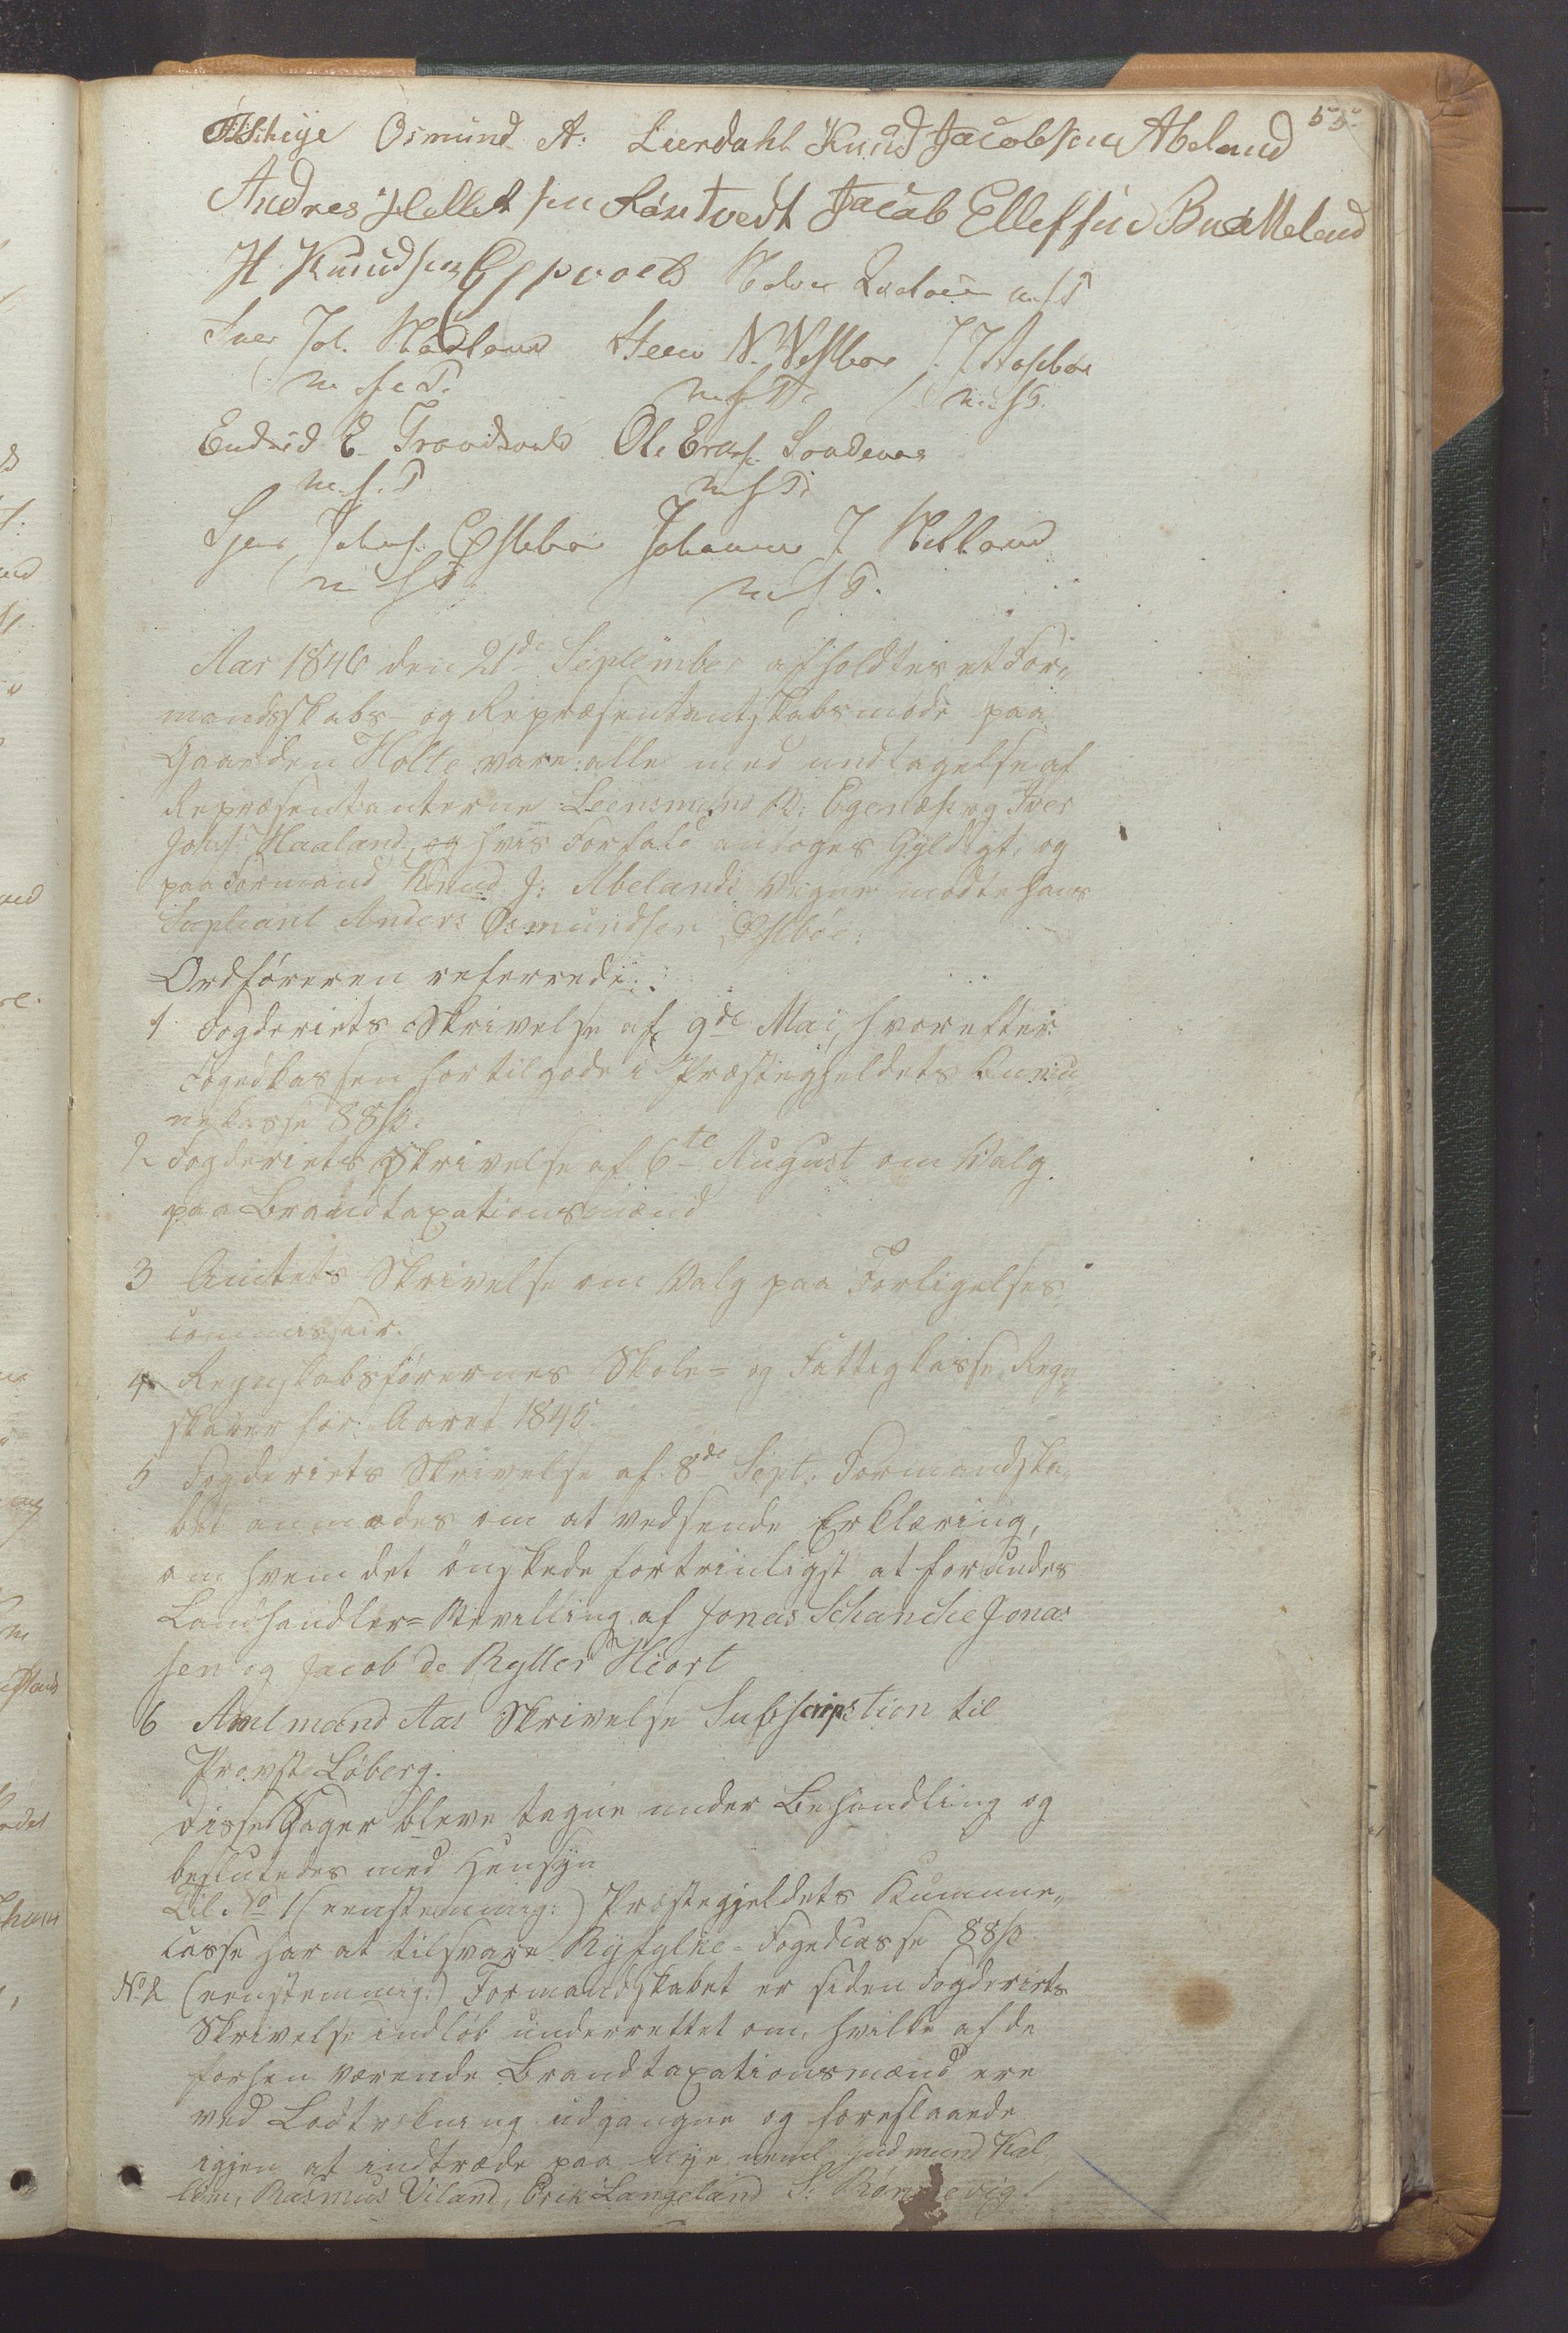 55
Osmund A: Lierdahl Knud Jacobsen Abeland
Andres Helleksen Røretvedt Jacab Ellefsen
H Knudsen
Iver Joh. Steen N. Vestbøe J. J. Østebøe
m. f. P. m. f. P. m. f. P.
Endred E. Ole Erasm.
m. f. P. m. f. P.
Johns. Østebøe Johannes J.
m. f. P. m. f. P.
Aar 1846 den 21de September afholdtes et For-
mandskabs- og Repræsentantskabsmøde paa
Gaarden Holte, vare: alle med undtagelse af
Repræsentanterne Leensmand R: Egenæs og Iver
Johs: Haaland, og hvis Forfald ansoges Gyldigt, og
paa Formand Knud J: Abelands Vegne mødte hans
Supleant Anders Osmundsen Østbøe.
Ordføreren referrede:
1 Fogderiets Skrivelse af 9de Mai, hvorefter
Fogedkassen har tilgode i Præstegjeldets Kumu-
nekasse 88 ß.
2 Fogderiets Skrivelse af 6te August om Valg
paa Brandtaxationsmænd
3 Amtets Skrivelse om Valg paa Forligelses
commissair.
4 Regnskabsførernes Skole- og Fattigkasse Regn-
skaber for Aaret 1845.
5 Fogderiets Skrivelse af 8de Sept. Formandska-
bet anmodes om at vedsende Erklæring,
om hvem det ønskede fortrinligst at forundes
Landhandler-Bevilling af Jonas Schanche Jona-
sen og Jacob de Rytter Hiort
6 Amtmand Aas Skrivelse Subscription til
Provst Løberg.
Disse Sager bleve tagne under Behandling og
besluttedes med Hensyn
Til No 1 (eenstemmig:) Præstegjeldets Kumune-
casse har at tilsvare Ryfylke-Fogedcasse 88 ß
No 2 (eenstemmig:) Formandskabet er siden Fogderiets
Skrivelse indløb underrettet om, hvilke af de
forhen værende Brandtaxationsmænd ere
ved Lodtrækning udgangne og foreslaaede
igjen at indtræde paa nye neml. Gudmund Kal
Rasmus Viland, Erik Langeland S.